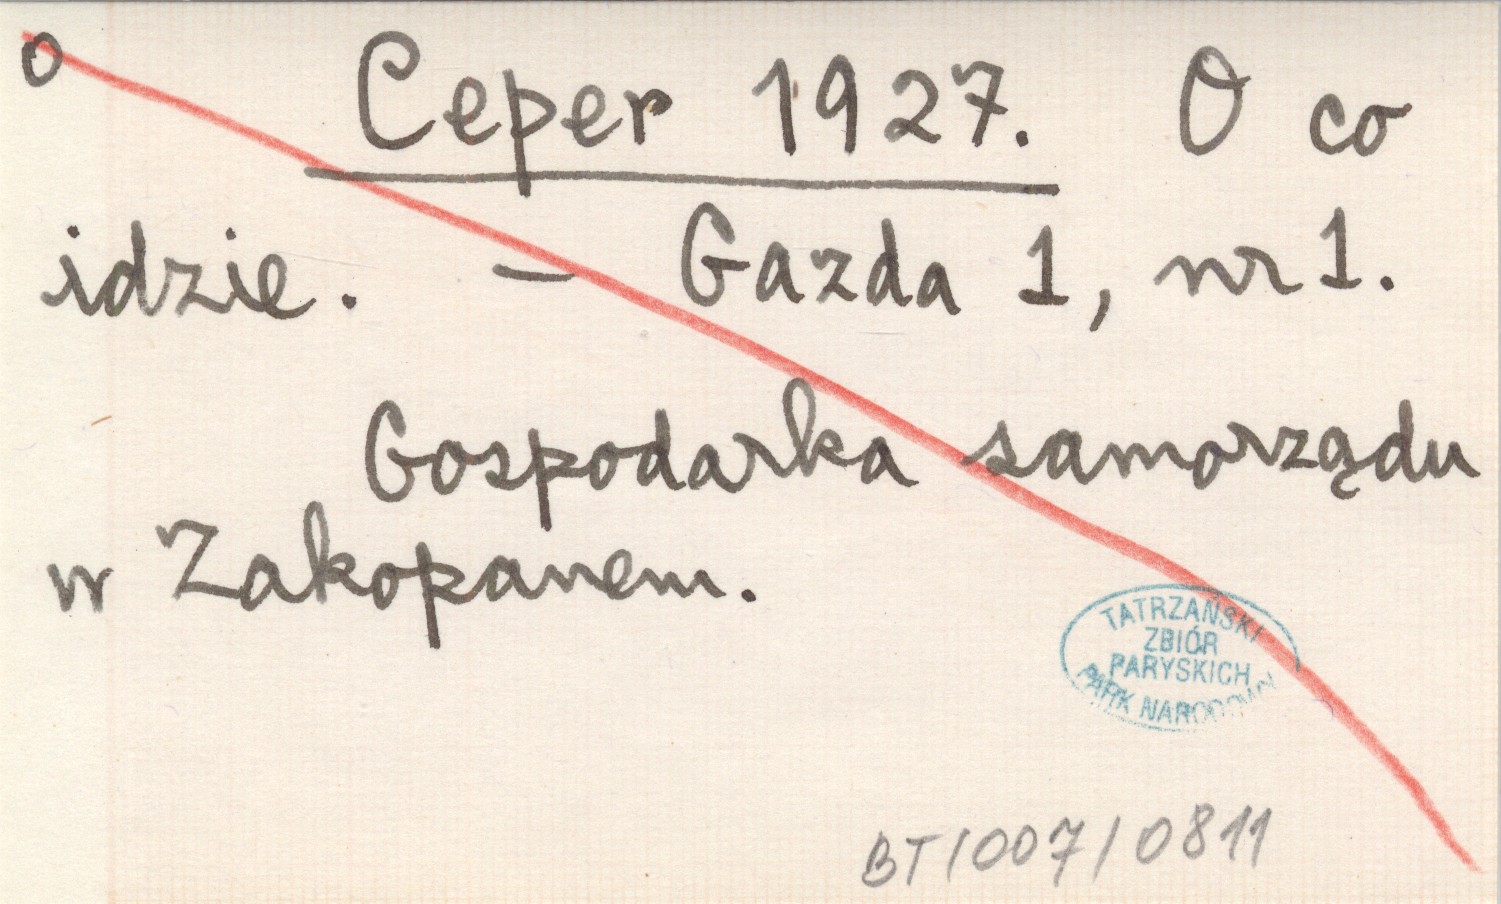 o Ceper 1927. O co
idzie. – Gazda 1, nr 1.
Gospodarka samorządu
w Zakopanem.
TATRZAŃSKI
ZBIÓR
PARYSKICH
PARK NARODOWY
BT/007/0811